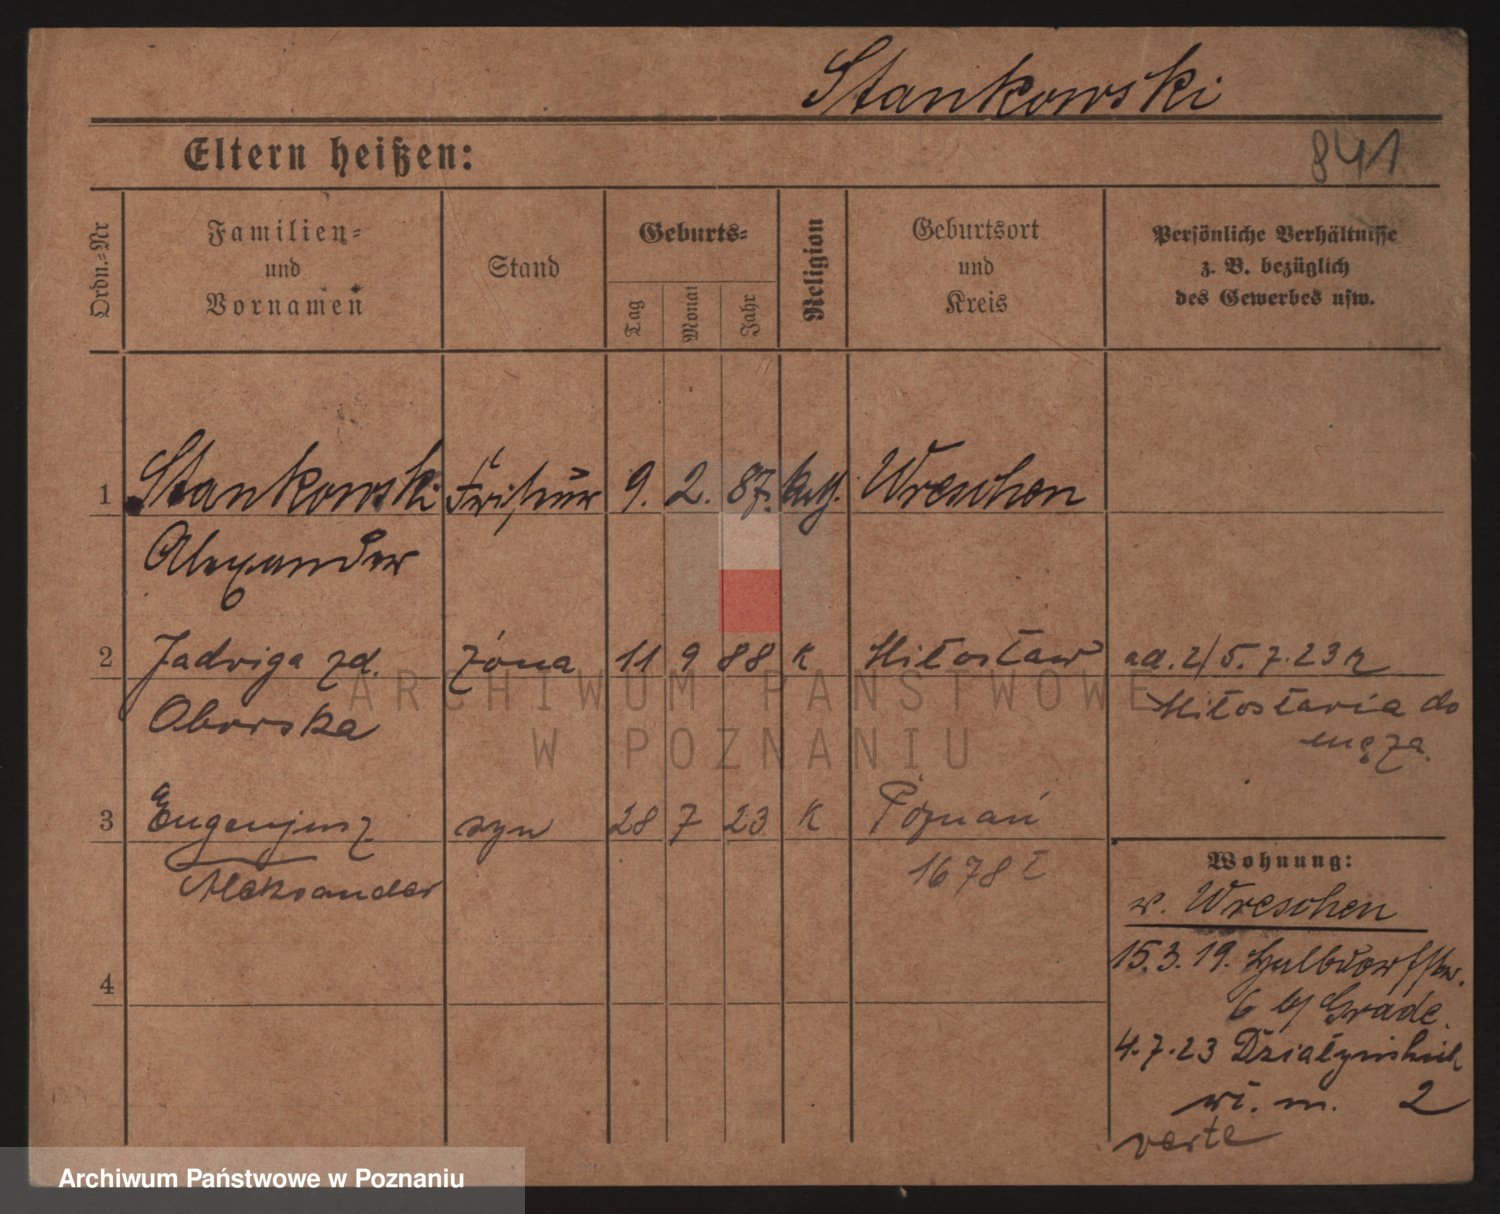 Stankowski
841
Eltern heißen:
Ordn.-Nr
Familien-
und
Vornamen
Stand
Geburts-
Tag
Monat
Jahr
Religion
Geburtsort
und
Kreis
Persönliche Verhältnisse
z. B. bezüglich
des Gewerbes usw.
1 Stankowski Friseur 9. 2. 87. kath. Wreschen
Alexander
2 Jadwiga zd. żona 11 9 88 k Miłosław ad. 2/ 5.7.23 z
Oborska Miłosławia do
męża.
3 Eugenjusz syn 28 7 23 k Poznań
Aleksander 1678 I
4
Wohnung:
v. Wreschen
15.3.19. Halbdorfstr.
6 b/ Grade.
4.7.23 Działyńskich
wi. m. 2
verte
ARCHIWUM PAŃSTWOWE
W POZNANIU
Archiwum Państwowe w Poznaniu